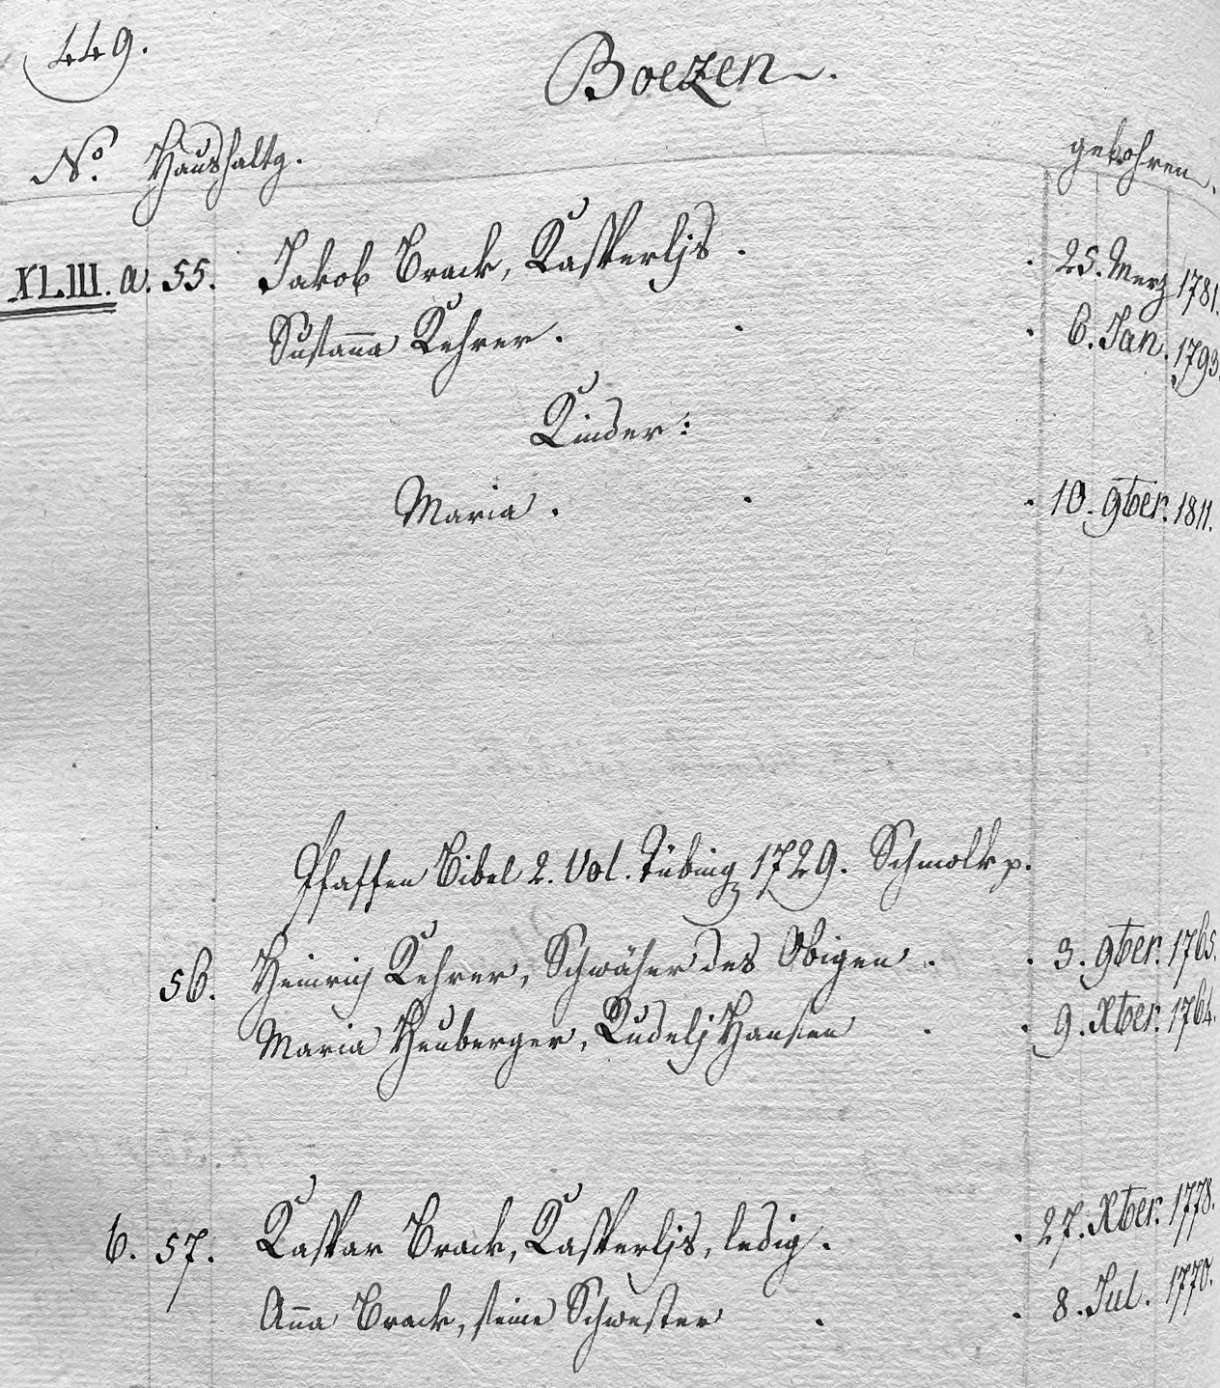 449.
Boezen.
No. Haushaltg. gebohren.
XLIII. a. 55. Jakob Brack, Kasperljs. 25. Merz 1781.
Susaña Kehrer. 6. Jan. 1793.
Kinder:
Maria. 10. 9ber. 1811.
Pfaffen Bibel 2. Vol. Tübing 1729. Schmolk p.
56. Heinrich Kehrer, Schwäher des Obigen. 3. 9ber. 1765.
Maria Heuberger, Rudelj Hansen 9. Xber. 1764.
b. 57. Kaspar Brack, Kasperljs, ledig. 27. Xber. 1778.
Aña Brack, seine Schwester 8. Jul. 1770.